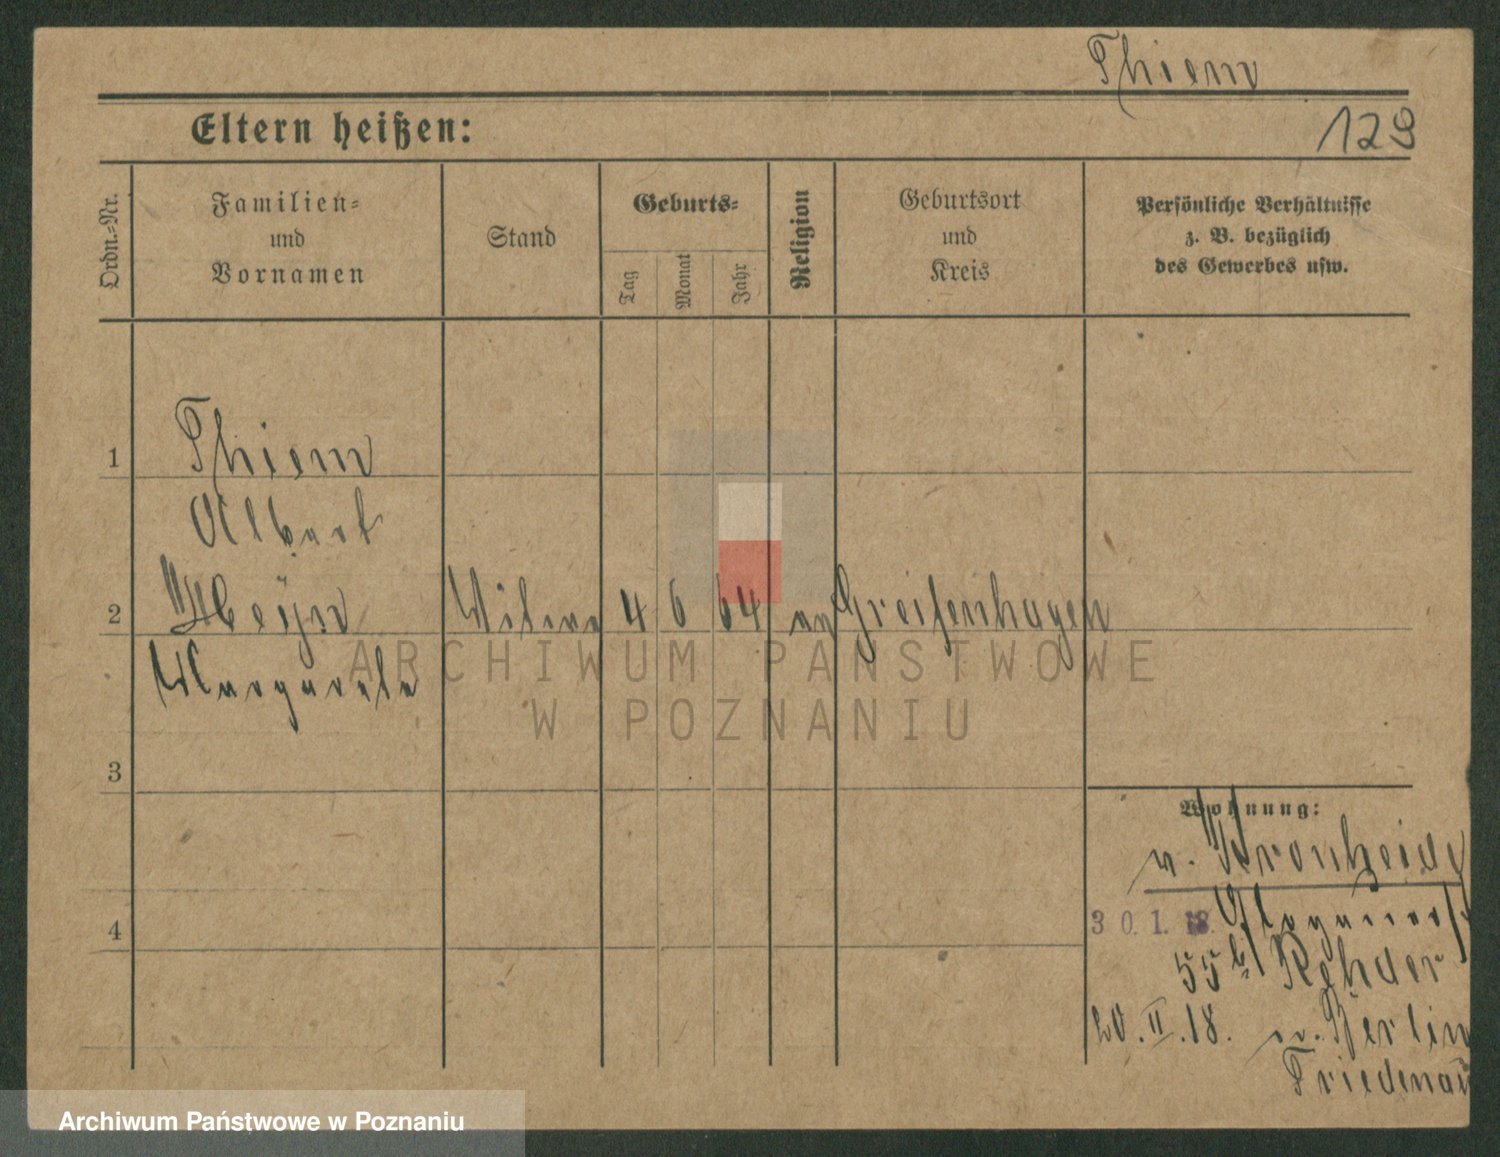 Thiem
129
Eltern heißen:
Ordn.=Nr.
Familien=
und
Vornamen
Stand
Geburts=
Tag
Monat
Jahr
Religion
Geburtsort
und
Kreis
Persönliche Verhältnisse
z. B. bezüglich
des Gewerbes usw.
1 Thiem
Albert
2 Heyn Witwe 4 6 64 ev Greifenhagen
Margarete
3
Wohnung:
v. Kronheide
30.1.18. Glogauerst
4
55 b/ Rehder
20.II.18. n. Berlin
Friedenau
ARCHIWUM PAŃSTWOWE
W POZNANIU
Archiwum Państwowe w Poznaniu